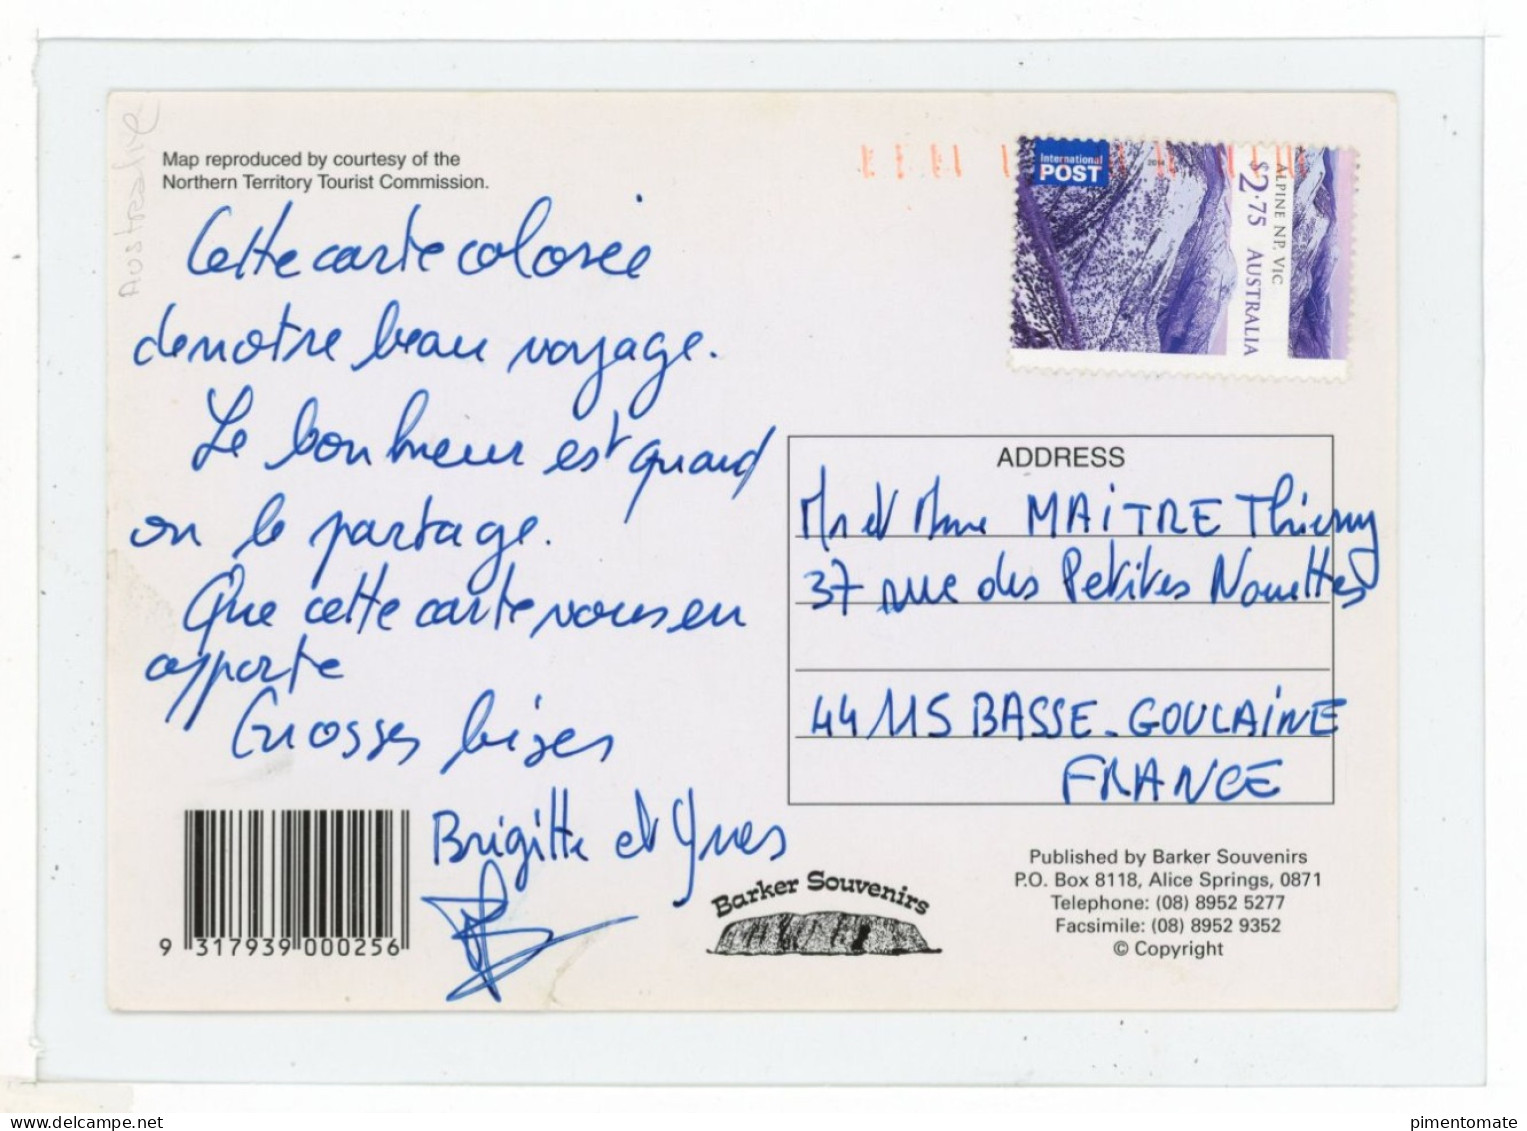 Map reproduced by courtesy of the
Northern Territory Tourist Commission.
Cette carte colorée
de notre beau voyage.
Le bonheur est quand
on le partage.
Que cette carte vous en
apporte
Grosses bises
Brigitte et Yves
International
POST
2014
ALPINE NP, VIC
$2.75 AUSTRALIA
ADDRESS
Mr et Mme MAITRE Thierry
37 rue des Petites Nouettes
44115 BASSE-GOULAINE
FRANCE
9 317939 000256
Barker Souvenirs
Published by Barker Souvenirs
P.O. Box 8118, Alice Springs, 0871
Telephone: (08) 8952 5277
Facsimile: (08) 8952 9352
© Copyright
pimentomate
delcampe.net